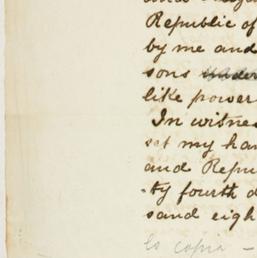 Republic of
by me and
sons
like power
In witnes
set my han
and Repu
ty fourth d
sand eigh
Es copia -